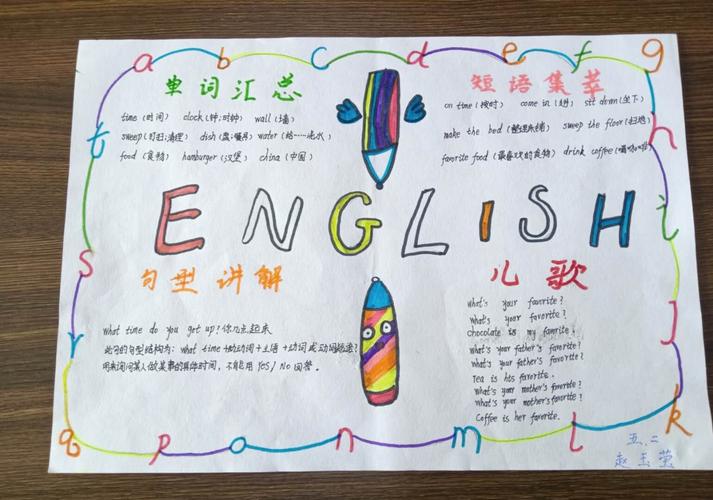 a b c d e f g
h
i
j
k
l
m
n
o
p
q
r
s
t
单词汇总
time (时间) clock (钟;时钟) wall (墙)
sweep (打扫;清理) dish (盘;餐具) water (给……浇水)
food (食物) hamburger (汉堡) china (中国)
短语集萃
on time (按时) come in (进) sit down (坐下)
make the bed (整理床铺) sweep the floor (扫地)
favorite food (最喜欢的食物) drink coffee
ENGLISH
句型讲解
what time do you get up? 你几点起床
此句的句型结构为: what time +助动词+主语+动词或动词短语?
用来询问某人做某事的具体时间, 不能用 Yes/ No 回答。
儿歌
what's your favorite?
what's your favorite?
chocolate is my favorite.
what's your father's favorite?
what's your father's favorite?
Tea is his favorite.
what's your mother's favorite?
what's your mother's favorite?
Coffee is her favorite.
五.二
赵玉莹